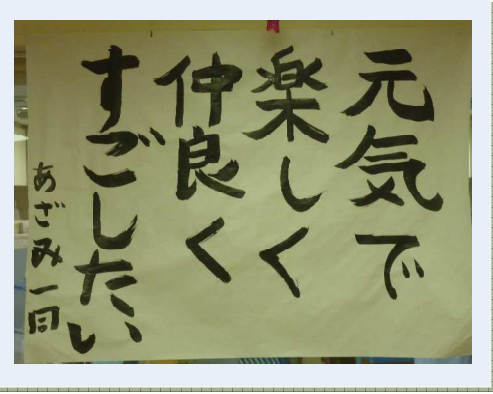 元気で
楽しく
仲良く
すごしたい
あざみ一同